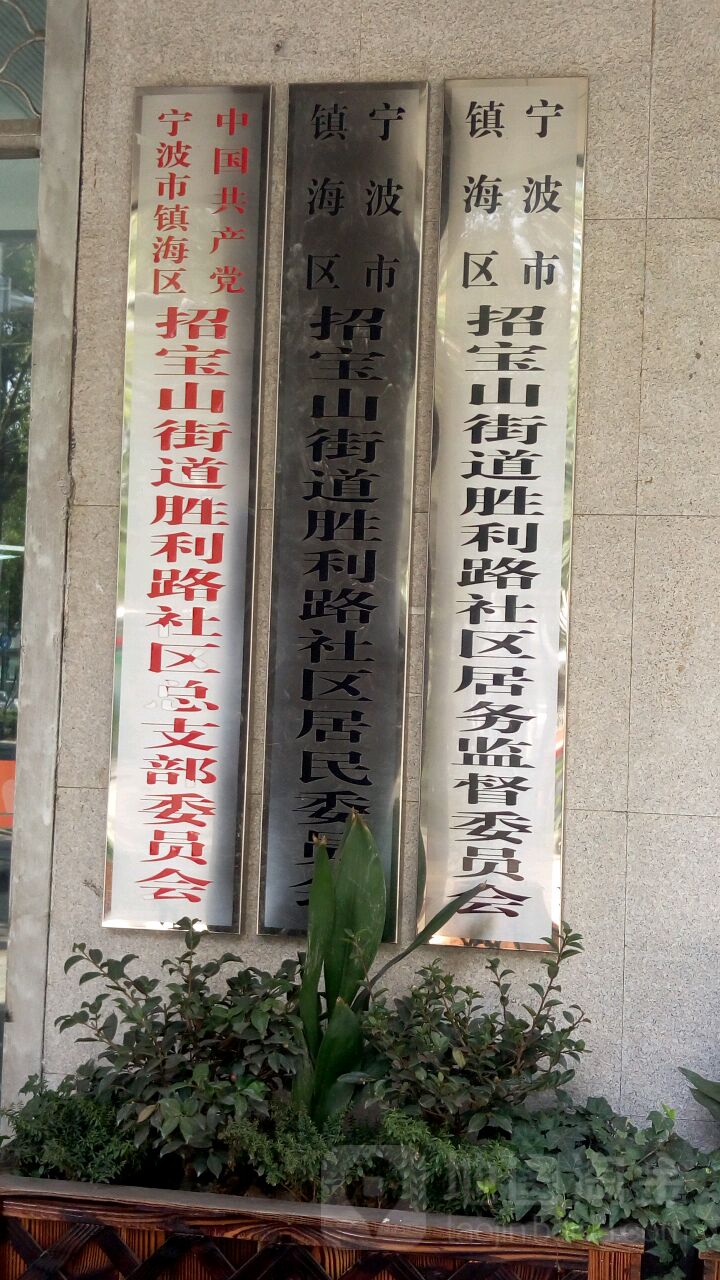 中国共产党
宁波市镇海区
招宝山街道胜利路社区总支部委员会
宁波市
镇海区
招宝山街道胜利路社区居民委员会
宁波市
镇海区
招宝山街道胜利路社区居务监督委员会